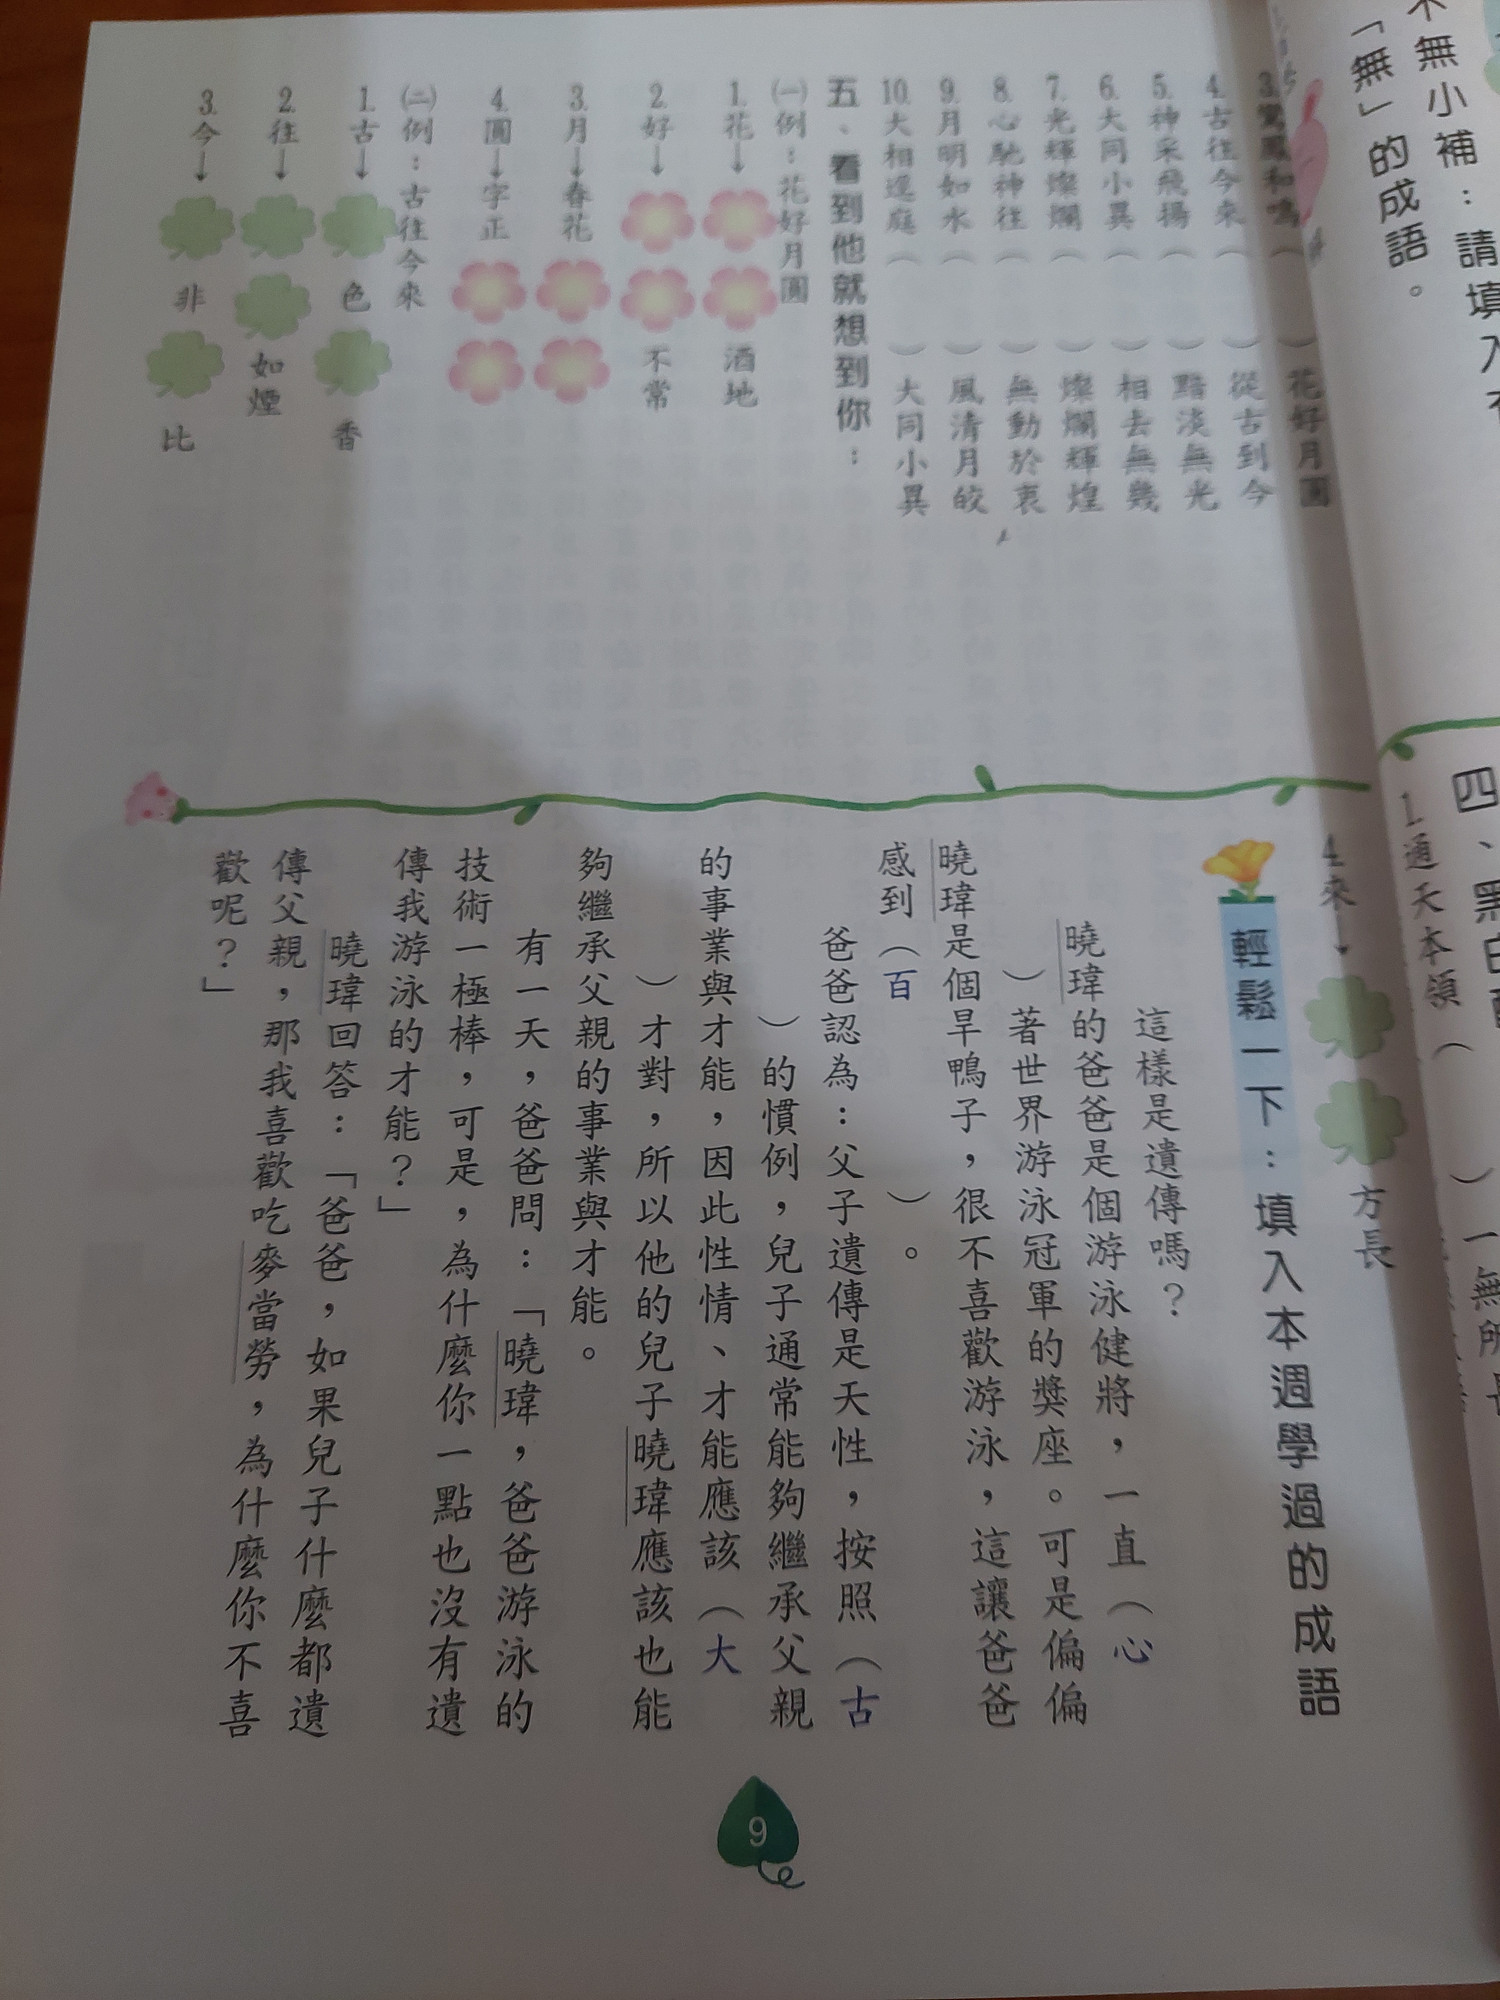 不無小補：請填入
「無」的成語。
四、黑白
1.通天本領（　）一無所長
3.鸞鳳和鳴（　）花好月圓
4.古往今來（　）從古到今
5.神采飛揚（　）黯淡無光
6.大同小異（　）相去無幾
7.光輝燦爛（　）燦爛輝煌
8.心馳神往（　）無動於衷
9.月明如水（　）風清月皎
10.大相逕庭（　）大同小異
五、看到他就想到你：
㈠例：花好月圓
1.花→酒地
2.好→不常
3.月→春花
4.圓→字正
㈡例：古往今來
1.古→色香
2.往→如煙
3.今→非比
4.來→方長
輕鬆一下：填入本週學過的成語
這樣是遺傳嗎？
曉瑋的爸爸是個游泳健將，一直（心
）著世界游泳冠軍的獎座。可是偏偏
曉瑋是個旱鴨子，很不喜歡游泳，這讓爸爸
感到（百　）。
爸爸認為：父子遺傳是天性，按照（古
）的慣例，兒子通常能夠繼承父親
的事業與才能，因此性情、才能應該（大
）才對，所以他的兒子曉瑋應該也能
夠繼承父親的事業與才能。
有一天，爸爸問：「曉瑋，爸爸游泳的
技術一極棒，可是，為什麼你一點也沒有遺
傳我游泳的才能？」
曉瑋回答：「爸爸，如果兒子什麼都遺
傳父親，那我喜歡吃麥當勞，為什麼你不喜
歡呢？」
9